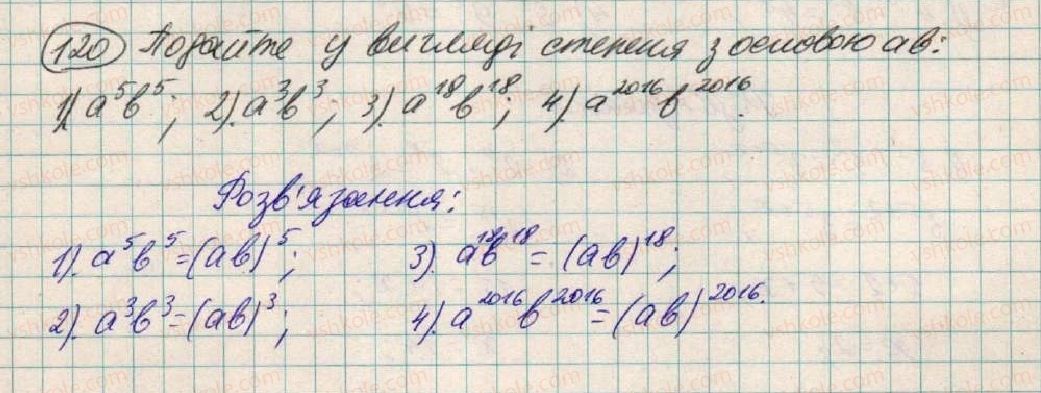 120 Подайте у вигляді степеня з основою ab:
1). a⁵b⁵; 2). a³b³; 3). a¹⁸b¹⁸; 4). a²⁰¹⁶b²⁰¹⁶.
Розв'язання:
1). a⁵b⁵=(ab)⁵; 3). a¹⁸b¹⁸ = (ab)¹⁸;
2). a³b³=(ab)³; 4). a²⁰¹⁶b²⁰¹⁶=(ab)²⁰¹⁶.